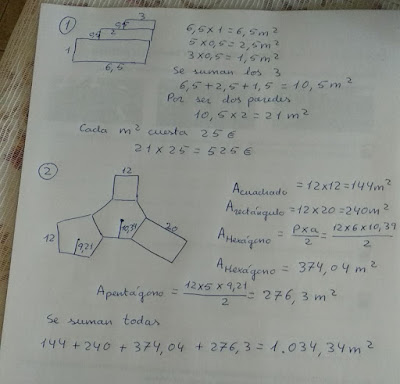 ①
3
0,5
2
0,5
1
6,5
6,5 x 1 = 6,5 m²
5 x 0,5 = 2,5 m²
3 x 0,5 = 1,5 m²
Se suman los 3
6,5 + 2,5 + 1,5 = 10,5 m²
Por ser dos paredes
10,5 x 2 = 21 m²
Cada m² cuesta 25 €
21 x 25 = 525 €
②
12
10,39
20
12
9,21
A cuadrado = 12 x 12 = 144 m²
A rectángulo = 12 x 20 = 240 m²
A Hexágono = P x a / 2 = 12 x 6 x 10,39 / 2
A Hexágono = 374,04 m²
A pentágono = 12 x 5 x 9,21 / 2 = 276,3 m²
Se suman todas
144 + 240 + 374,04 + 276,3 = 1.034,34 m²